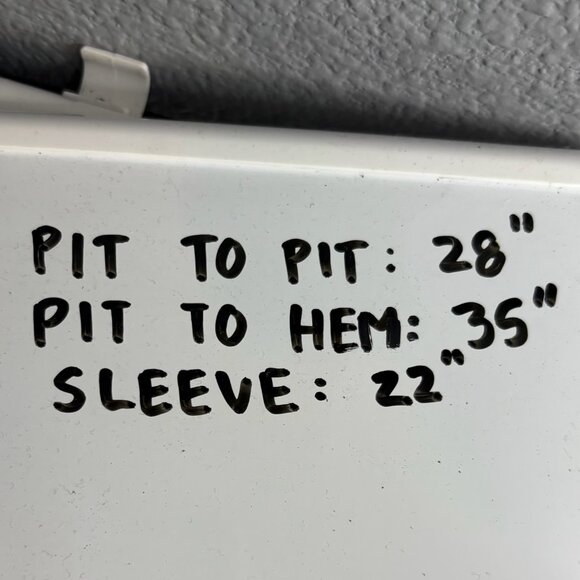 PIT TO PIT: 28"
PIT TO HEM: 35"
SLEEVE: 22"